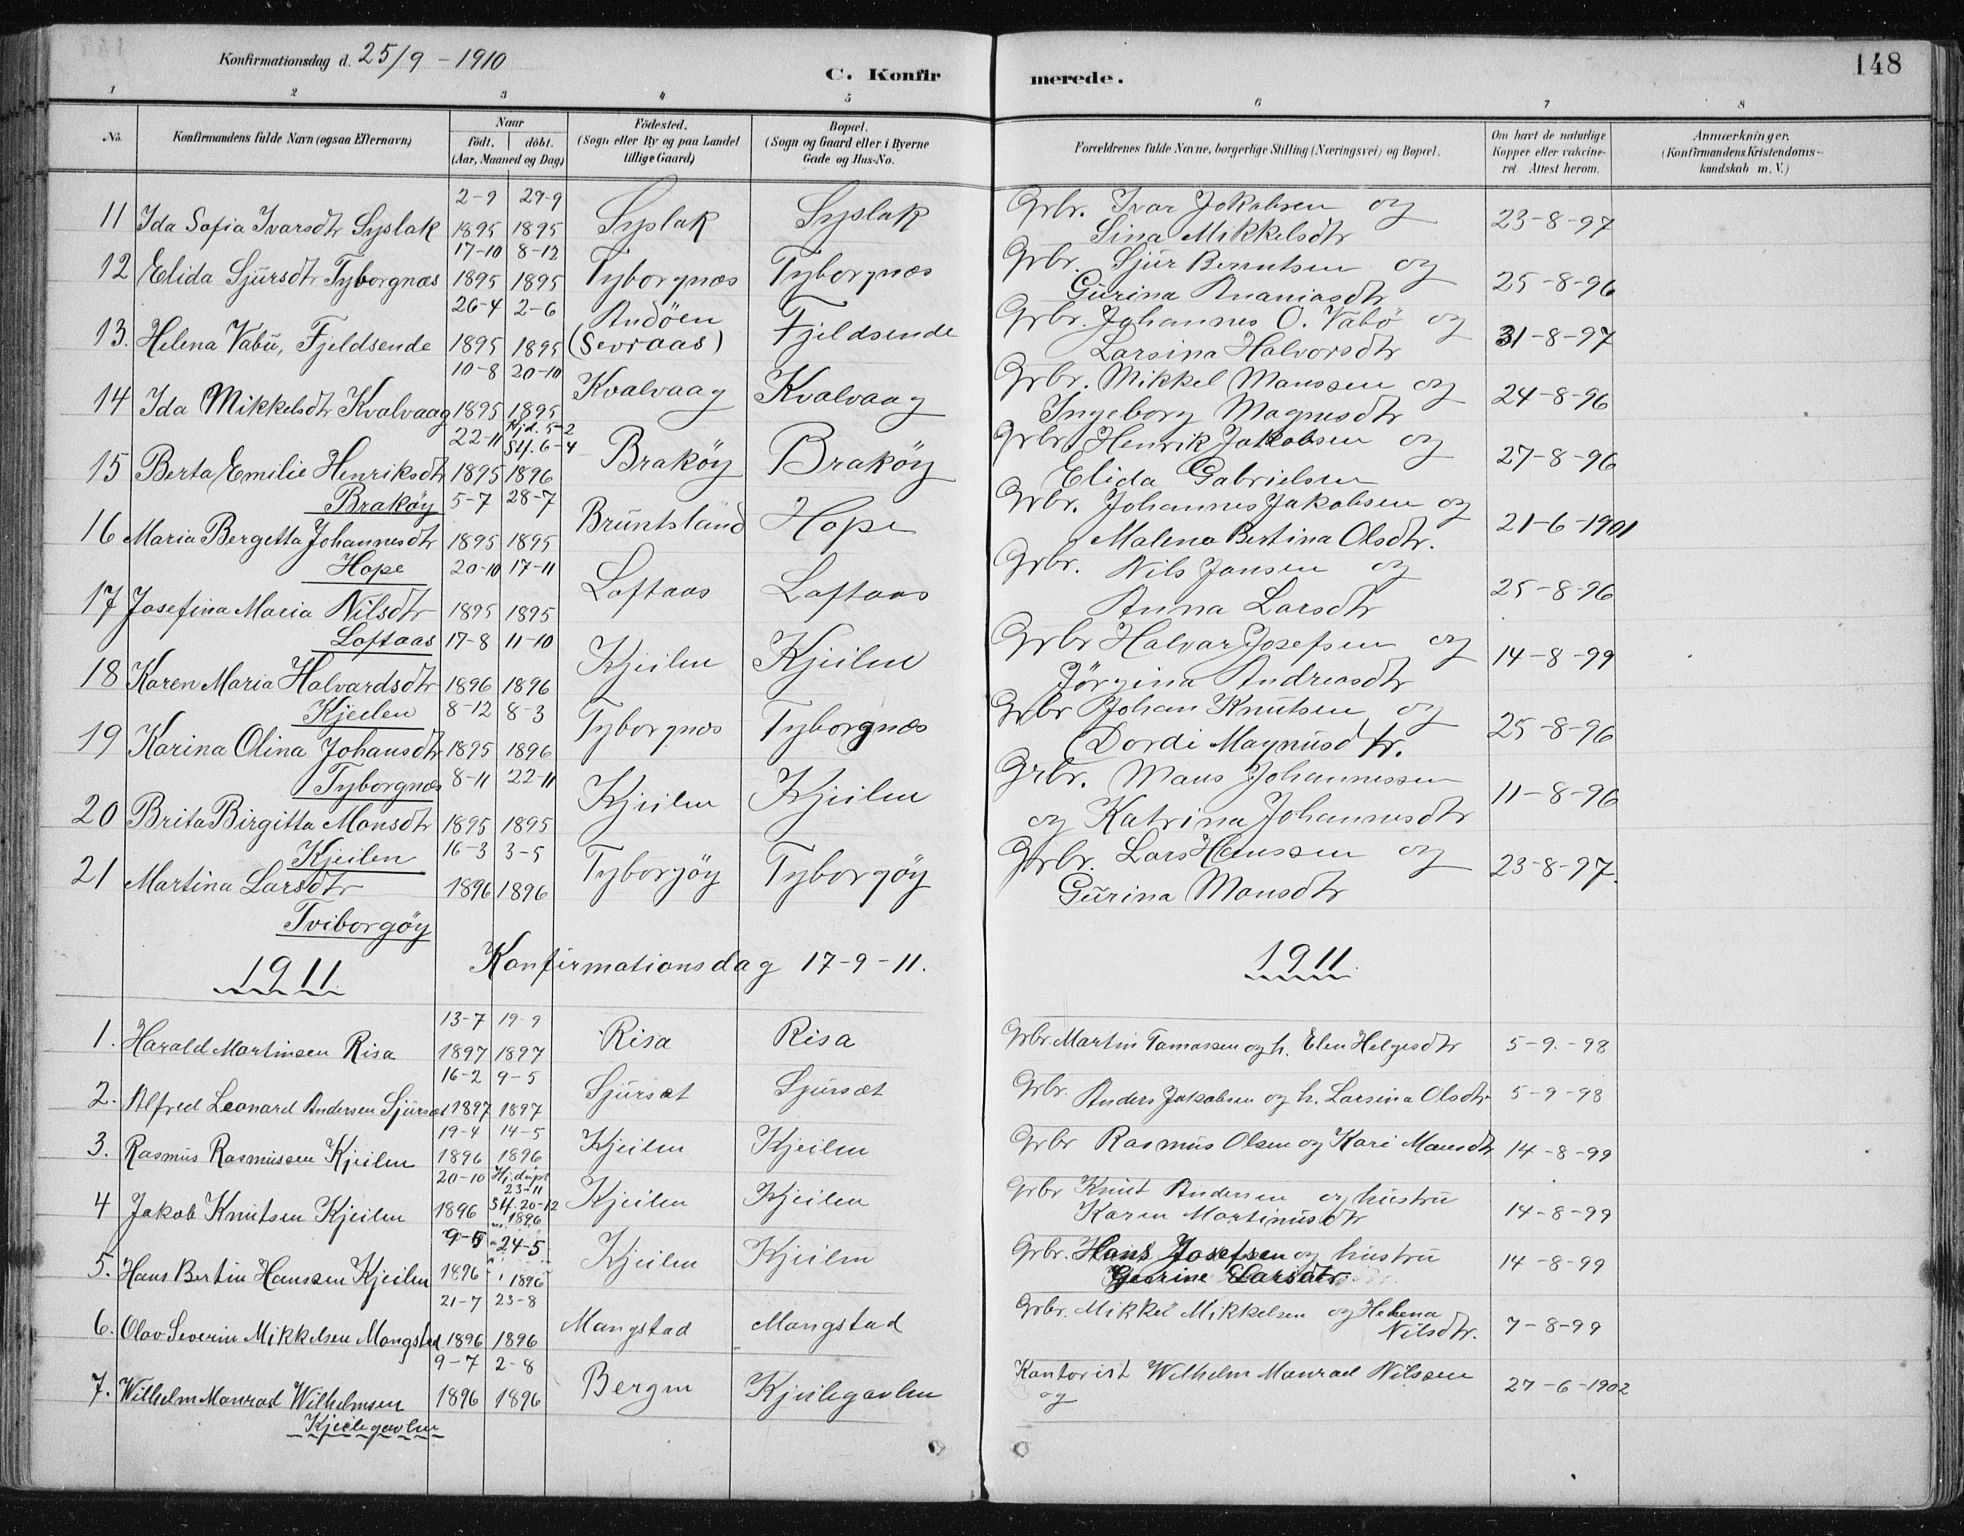 Konfirmationsdag d. 25/9 - 1910
C. Konfirmerede.
148
1 2 3 4 5 6 7 8
No.
Konfirmandens fulde Navn (ogsaa Efternavn)
Naar
födt. döbt.
(Aar, Maaned og Dag)
Födested.
(Sogn eller By og paa Landet
tillige Gaard)
Bopæl.
(Sogn og Gaard eller i Byerne
Gade og Hus-No.
Forældrenes fulde Navne, borgerlige Stilling (Næringsvei) og Bopæl.
Om havt de naturlige
Kopper eller vaccine-
ret. Attest herom.
Anmærkninger.
(Konfirmandens Kristendoms-
kundskab m. V.)
2-9 29-9 Grbr. Ivar Jakobsen og
11 Ida Sofia Ivarsdtr Syslak 1895 1895 Syslak Syslak Sina Mikkelsdtr 23-8-97
17-10 8-12 Grbr. Sjur Berntsen og
12 Elida Sjursdtr Tyborgnæs 1895 1895 Tyborgnæs Tyborgnæs Gurina Ananiasdtr 25-8-96
26-4 2-6 Andöen Grbr. Johannes O. Vabö og
13. Helena Vabö, Fjeldsende 1895 1895 (Sevraas) Fjeldsende Larsina Halvorsdtr 31-8-97
10-8 20-10 Grbr. Mikkel Manssen og
14 Ida Mikkelsdtr Kvalvaag 1895 1895 Kvalvaag Kvalvaag Ingeborg Magnusdtr 24-8-96
22-11 Hjd. 5-2 St. 6-4 Grbr. Henrik Jakobsen og
15 Berta Emilie Henriksdtr 1895 1896 Braköy Braköy Elida Gabrielsen 27-8-96
Braköy 5-7 28-7 Grbr. Johannes Jakobsen og
16 Maria Bergetta Johannesdtr 1895 1895 Bruntsland Hope Malena Bertina Olsdtr. 21-6-1901
Hope 20-10 17-11 Grbr. Nils Jansen og
17 Josefina Maria Nilsdtr 1895 1895 Loftaas Loftaas Anna Larsdtr 25-8-96
Loftaas 17-8 11-10 Grbr Halvar Josefsen og
18 Karen Maria Halvardsdtr 1896 1896 Kjeilen Kjeilen Jörgina Andreasdtr 14-8-99
Kjeilen 8-12 8-3 Grbr Johan Knutsen og
19 Karina Olina Johansdtr 1895 1896 Tyborgnæs Tyborgnæs Dordi Magnusdtr. 25-8-96
Tyborgnæs 8-11 22-11 Grbr. Mans Johannessen
20 Brita Birgitta Monsdtr 1895 1895 Kjeilen Kjeilen og Katrina Johannesdtr 11-8-96
Kjeilen 16-3 3-5 Grbr. Lars Hanssen og
21 Martina Larsdtr 1896 1896 Tyborgöy Tyborgöy Gurina Monsdtr 23-8-97.
Tviborgöy
1911 Konfirmationsdag 17-9-11. 1911
13-7 19-9
1. Harald Martinsen Risa 1897 1897 Risa Risa Grbr. Martin Tomassen og h. Elen Helgesdtr 5-9-98
16-2 9-5
2. Alfred Leonard Andersen Sjursæt 1897 1897 Sjursæt Sjursæt Grbr. Anders Jakobsen og h. Larsina Olsdtr 5-9-98
19-4 14-5
3. Rasmus Rasmussen Kjeilen 1896 1896 Kjeilen Kjeilen Grbr Rasmus Olsen og Kari Mansdtr 14-8-99
20-10 Hj.döpt 23-11 Grbr Knut Andersen og hustru
4 Jakob Knutsen Kjeilen 1896 St. 20-12 1896 Kjeilen Kjeilen Karen Martinusdtr 14-8-99
9-5 24-5 Grbr. Hans Josefsen og hustru
5. Hans Bertin Hanssen Kjeilen 1896 1896 Kjeilen Kjeilen Larsdtr 14-8-99
21-7 23-8 Grbr. Mikkel Mikkelsen og Helena
6. Olav Severin Mikkelsen Mangstad 1896 1896 Mangstad Mangstad Nilsdtr. 7-8-99
9-7 2-8 Kontorist Wilhelm Monrad Nilssen
7. Wilhelm Monrad Wilhelmsen 1896 1896 Bergen Kjeilegavlen og 27-6-1902
Kjeilegavlen